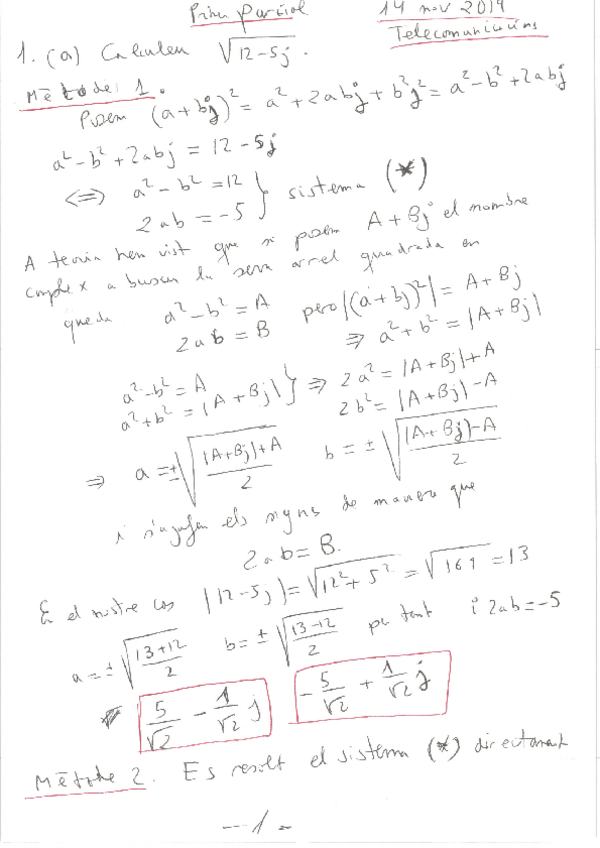 Primer parcial 14 nov 2019
Telecomunicacions
1. (a) Calculeu √(12-5j).
Mètode 1.
Posem (a+bj)² = a²+2abj+b²j² = a²-b²+2abj
a²-b²+2abj = 12-5j
⇔ a²-b² = 12
2ab = -5 } sistema (*)
A teoria hem vist que si posem A+Bj el nombre
complex a buscar la seva arrel quadrada en
queda a²-b² = A però |(a+bj)²| = A+Bj
2ab = B ⇒ a²+b² = |A+Bj|
a²-b² = A
a²+b² = |A+Bj| } ⇒ 2a² = |A+Bj|+A
2b² = |A+Bj|-A
⇒ a = ±√((|A+Bj|+A)/2) b = ±√((|A+Bj|-A)/2)
i s'agafen els signes de manera que
2ab = B.
En el nostre cas |12-5j| = √(12²+5²) = √161 = 13
a = ±√((13+12)/2) b = ±√((13-12)/2) per tant i 2ab = -5
5/√2 - 1/√2 j -5/√2 + 1/√2 j
Mètode 2. Es resolt el sistema (*) directament
-1-